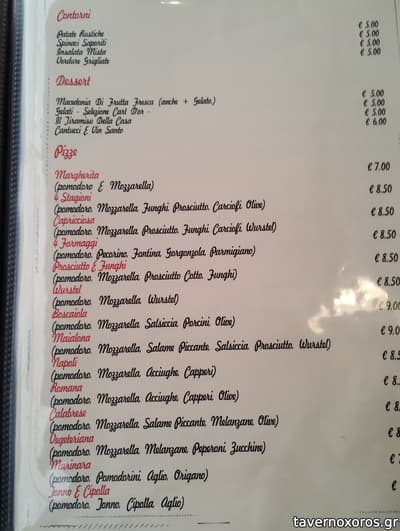 Contorni
Patate Rustiche € 5.00
Spinaci Saporiti € 5.00
Insalata Mista € 5.00
Verdure Grigliate € 5.00
Dessert
Macedonia Di Frutta Fresca (anche + Gelato) € 5.00
Gelati - Selezione Cart D'or - € 5.00
Il Tiramisu Della Casa € 5.00
Cantucci E Vin Santo € 6.00
Pizze
Margherita € 7.00
(pomodoro E Mozzarella)
4 Stagioni € 8.50
(pomodoro, Mozzarella, Funghi, Prosciutto, Carciofi, Olive)
Capricciosa € 8.50
(pomodoro, Mozzarella, Prosciutto, Funghi, Carciofi, Wurstel)
4 Formaggi € 8.50
(pomodoro, Pecorino, Fontina, Gorgonzola, Parmigiano)
Prosciutto E Funghi € 8.50
(pomodoro, Mozzarella, Prosciutto Cotto, Funghi)
Wurstel € 8.50
(pomodoro, Mozzarella, Wurstel)
Boscaiola € 9.00
(pomodoro, Mozzarella, Salsiccia, Porcini, Olive)
Maialona € 9.0
(pomodoro, Mozzarella, Salame Piccante, Salsiccia, Prosciutto, Wurstel)
Napoli € 8.5
(pomodoro, Mozzarella, Acciughe, Capperi)
Romana € 8.
(pomodoro, Mozzarella, Acciughe, Capperi, Olive)
Calabrese € 8.
(pomodoro, Mozzarella, Salame Piccante, Melanzane, Olive)
Vegetariana € 8
(pomodoro, Mozzarella, Melanzane, Peperoni, Zucchine)
Marinara €
(pomodoro, Pomodorini, Aglio, Origano)
Tonno E Cipolla €
(pomodoro, Tonno, Cipolla, Aglio)
tavernoxoros.gr